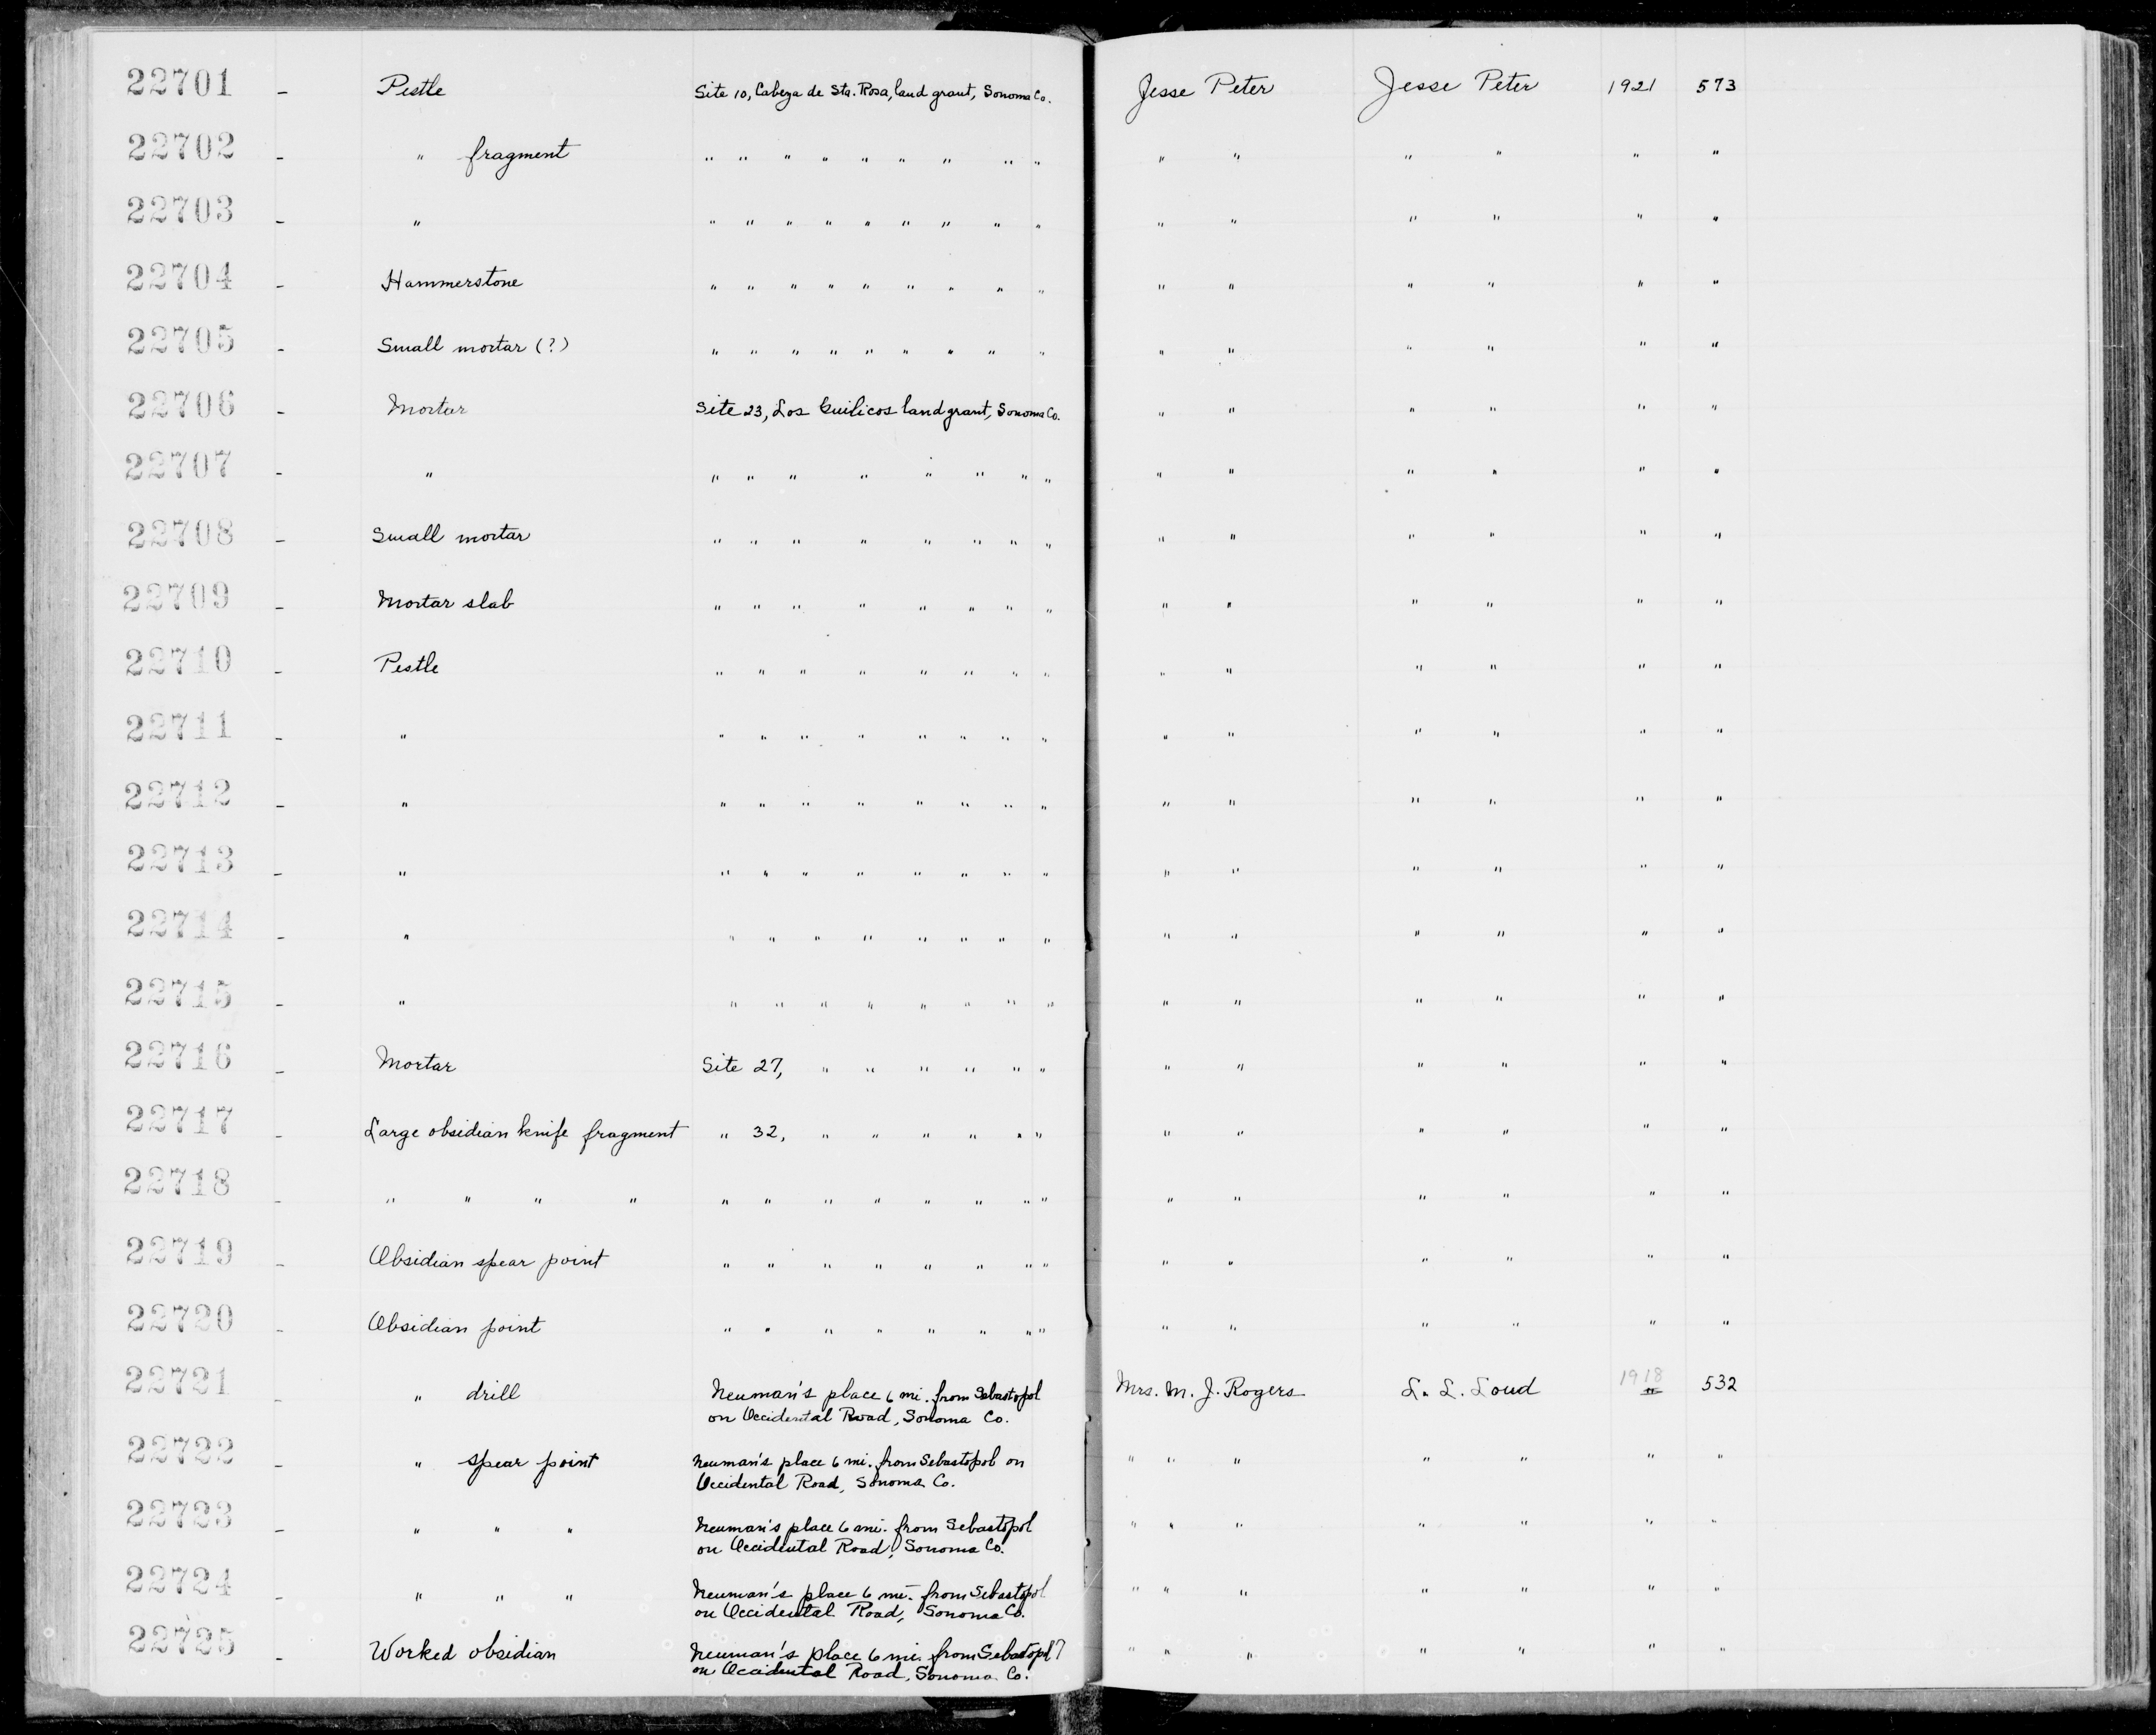 22701 - Pestle Site 10, Cabeza de Sta. Rosa, land grant, Sonoma Co. Jesse Peter Jesse Peter 1921 573
22702 - " fragment " " " " " " " " " " " " " " "
22703 - " " " " " " " " " " " " " " " "
22704 - Hammerstone " " " " " " " " " " " " " " "
22705 - Small mortar (?) " " " " " " " " " " " " " " "
22706 - Mortar Site 23, Los Guilicos land grant, Sonoma Co. " " " " " "
22707 - " " " " " " " " " " " " " " "
22708 - Small mortar " " " " " " " " " " " " " "
22709 - Mortar slab " " " " " " " " " " " " " "
22710 - Pestle " " " " " " " " " " " " " "
22711 - " " " " " " " " " " " " " " "
22712 - " " " " " " " " " " " " " " "
22713 - " " " " " " " " " " " " " " "
22714 - " " " " " " " " " " " " " " "
22715 - " " " " " " " " " " " " " " "
22716 - Mortar Site 27, " " " " " " " " " " " "
22717 - Large obsidian knife fragment " 32, " " " " " " " " " " " "
22718 - " " " " " " " " " " " " " " " " " "
22719 - Obsidian spear point " " " " " " " " " " " " " "
22720 - Obsidian point " " " " " " " " " " " " " "
22721 - " drill Neuman's place 6 mi. from Sebastopol Mrs. M. J. Rogers L. L. Loud 1918 532
on Occidental Road, Sonoma Co.
22722 - " spear point Neuman's place 6 mi. from Sebastopol on " " " " " " "
Occidental Road, Sonoma Co.
22723 - " " " Neuman's place 6 mi. from Sebastopol " " " " " " "
on Occidental Road, Sonoma Co.
22724 - " " " Neuman's place 6 mi. from Sebastopol " " " " " " "
on Occidental Road, Sonoma Co.
22725 - Worked obsidian Neuman's place 6 mi. from Sebastopol? " " " " " " "
on Occidental Road, Sonoma Co.